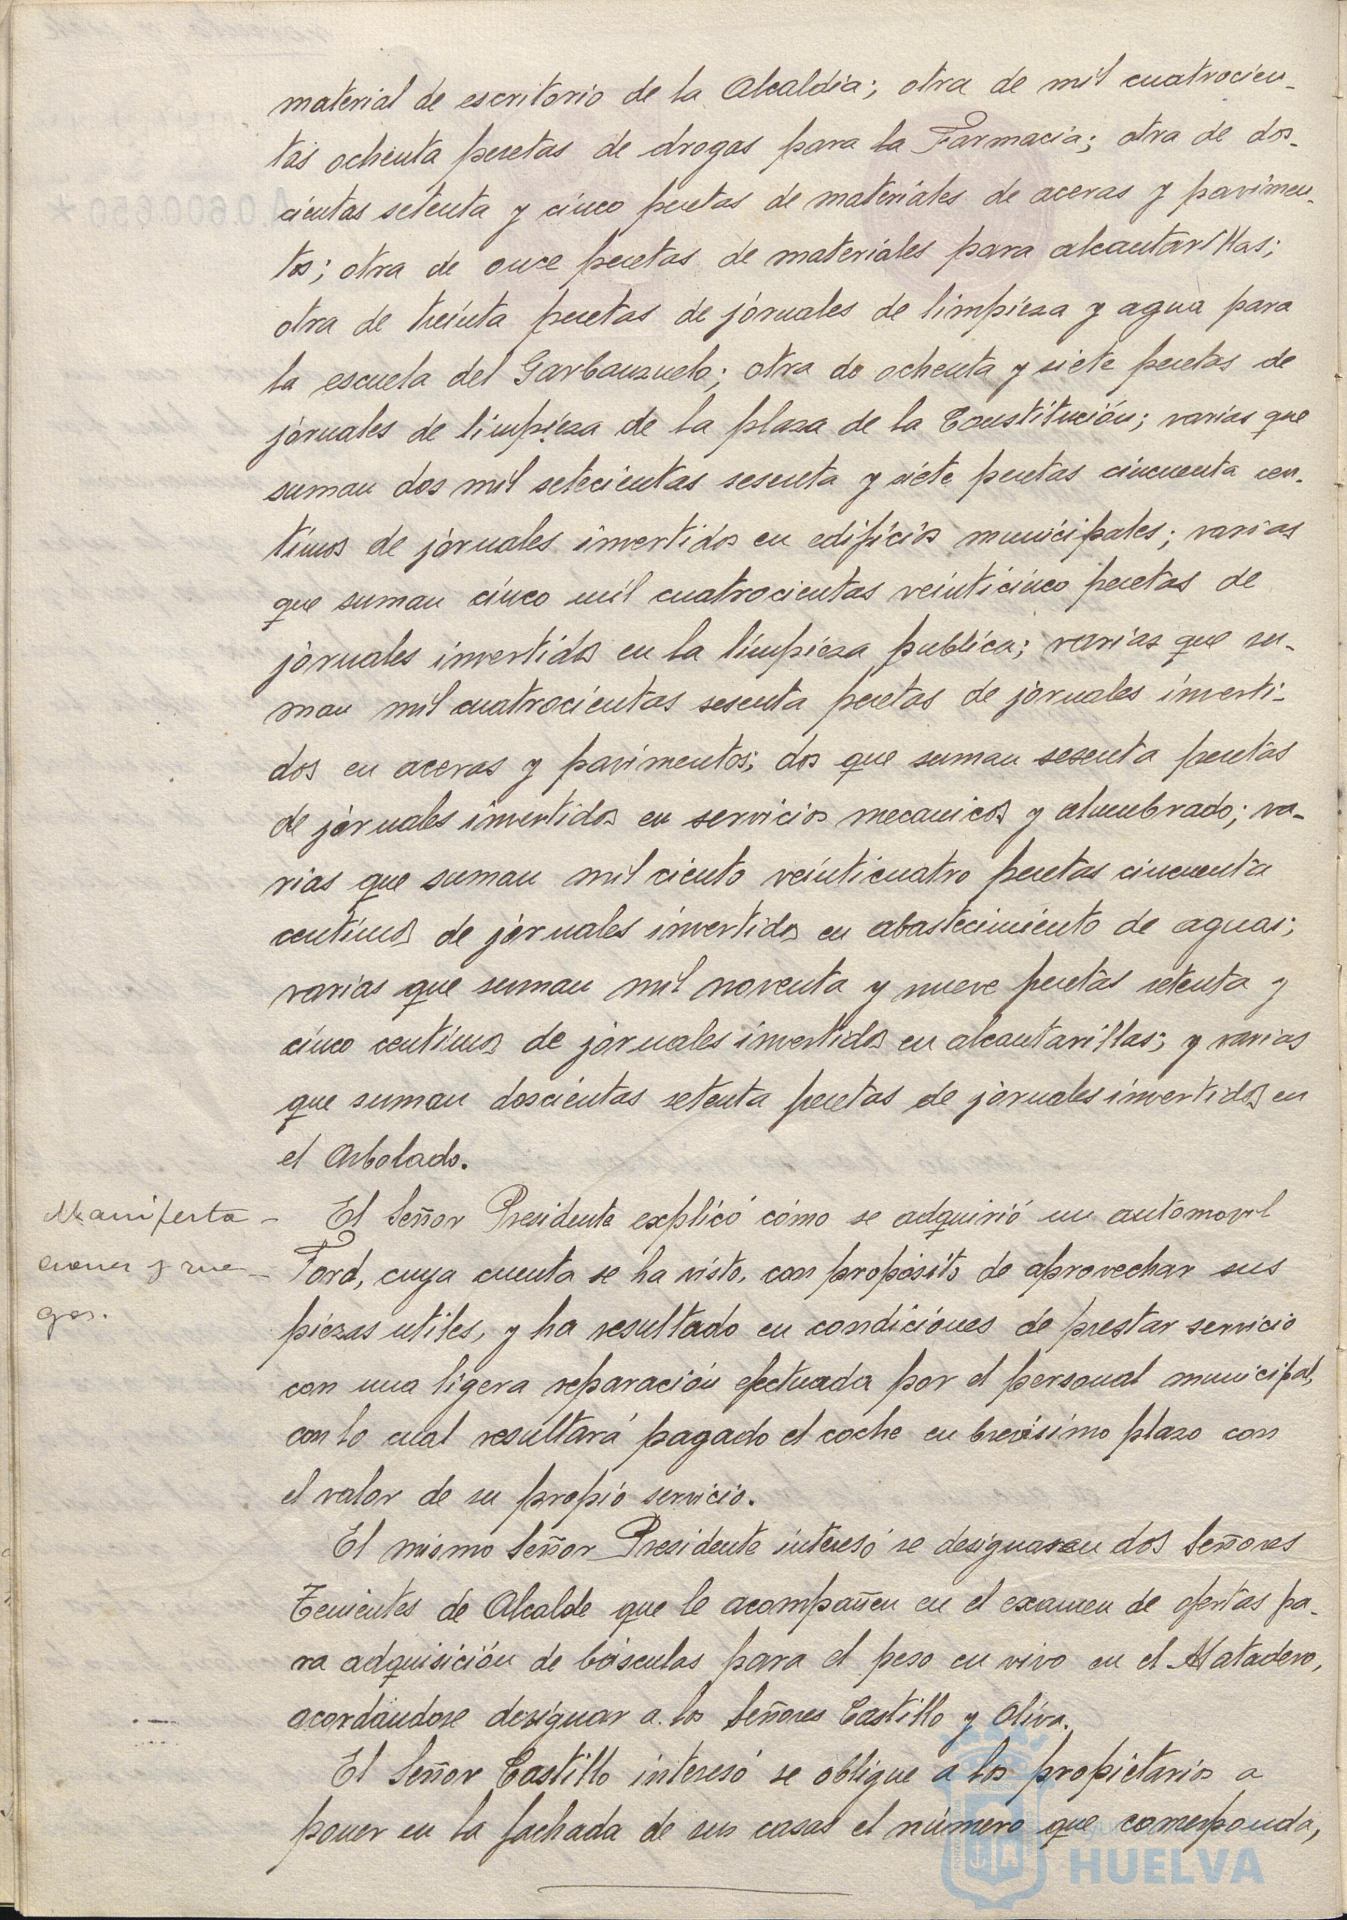 material de escritorio de la Alcaldía; otra de mil cuatrocien-
tas ochenta pesetas de drogas para la Farmacia; otra de dos-
cientas setenta y cinco pesetas de materiales de aceras y pavimen-
tos; otra de once pesetas de materiales para alcantarillas;
otra de treinta pesetas de jornales de limpieza y agua para
la escuela del Garbanzuelo; otra de ochenta y siete pesetas de
jornales de limpieza de la plaza de la Constitución; varias que
suman dos mil setecientas sesenta y siete pesetas cincuenta cen-
timos de jornales invertidos en edificios municipales; varias
que suman cinco mil cuatrocientas veinticinco pesetas de
jornales invertidos en la limpieza publica; varias que su-
man mil cuatrocientas sesenta pesetas de jornales inverti-
dos en aceras y pavimentos; dos que suman sesenta pesetas
de jornales invertidos en servicios mecanicos y alumbrado; va-
rias que suman mil ciento veinticuatro pesetas cincuenta
centimos de jornales invertidos en abastecimiento de aguas;
varias que suman mil noventa y nueve pesetas setenta y
cinco centimos de jornales invertidos en alcantarillas; y varias
que suman doscientas setenta pesetas de jornales invertidos en
el Arbolado.
Manifesta-
ciones y rue-
gos.
El Señor Presidente explicó cómo se adquirió un automovil
Ford, cuya cuenta se ha visto, con proposito de aprovechar sus
piezas utiles, y ha resultado en condiciones de prestar servicio
con una ligera reparación efectuada por el personal municipal,
con lo cual resultará pagado el coche en brevisimo plazo con
el valor de su propio servicio.
El mismo Señor Presidente interesó se designasen dos Señores
Tenientes de Alcalde que le acompañen en el examen de ofertas pa-
ra adquisición de básculas para el peso en vivo en el Matadero,
acordándose designar a los Señores Castillo y Oliva.
El Señor Castillo interesó se obligue a los propietarios a
poner en la fachada de sus casas el número que corresponda,
A.0.600.650 *
HUELVA